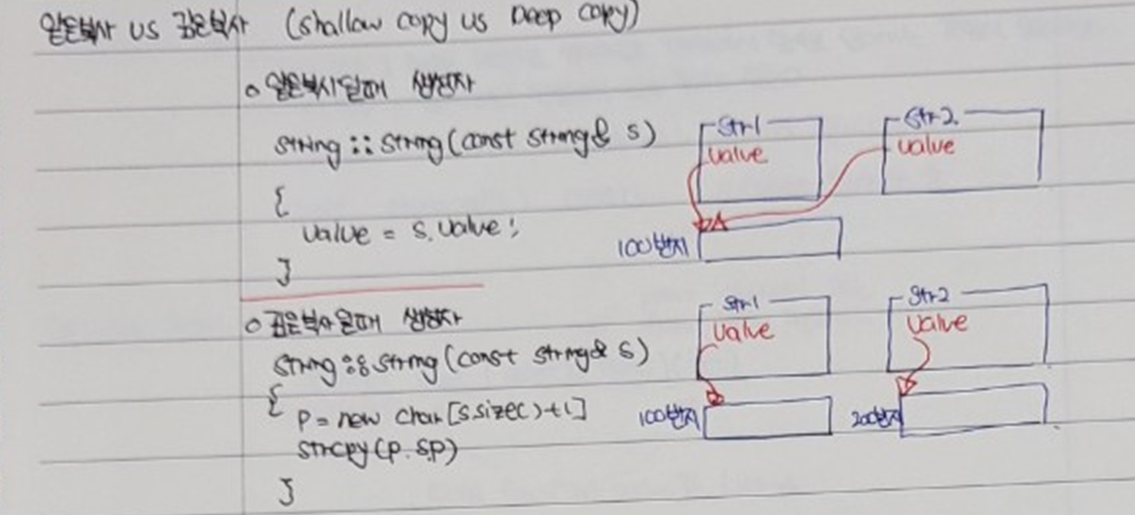 얕은복사 vs 깊은복사 (shallow copy vs Deep copy)
o 얕은복사일때 생성자
string::string(const string& s)
{
value = s.value;
}
str1
value
str2
value
100번지
o 깊은복사일때 생성자
string::string(const string& s)
{
p = new char[s.size()+1]
strcpy(p.s.p)
}
str1
value
str2
value
100번지
200번지